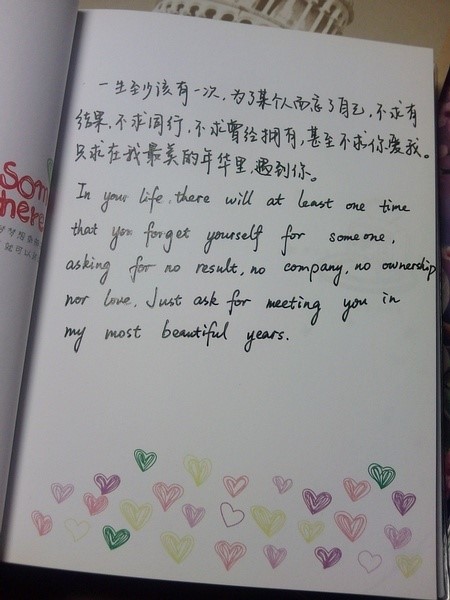 一生至少该有一次,为了某个人而忘了自己,不求有
结果,不求同行,不求曾经拥有,甚至不求你爱我。
只求在我最美的年华里,遇到你。
In your life, there will at least one time
that you forget yourself for someone,
asking for no result, no company, no ownership
nor love. Just ask for meeting you in
my most beautiful years.
som
here